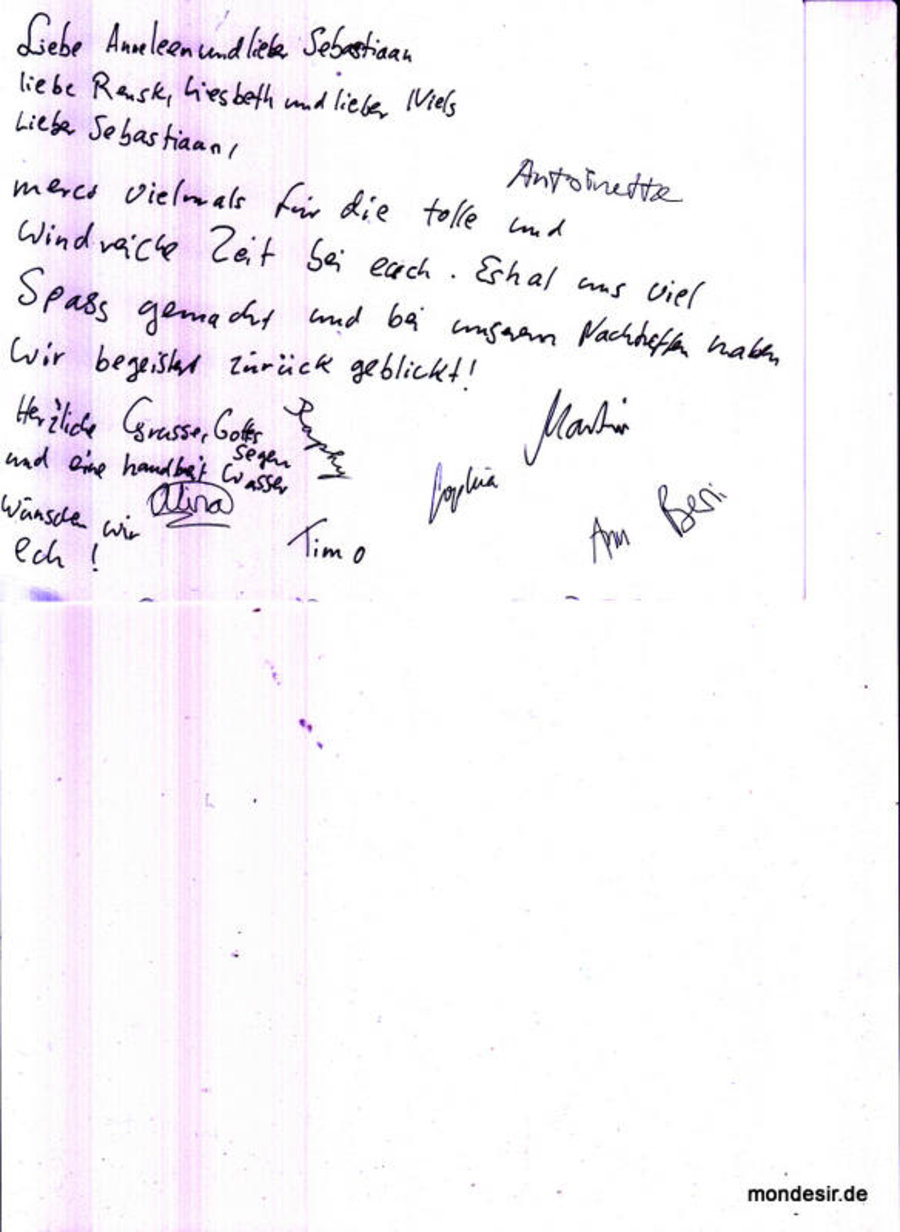 Liebe Anneleen und lieber Sebastiaan
liebe Rensk, Liesbeth und lieber Niels
Lieber Sebastiaan,
Antoinette
merci vielmals für die tolle und
Windreiche Zeit bei euch. Es hat uns viel
Spass gemacht und bei unserem Nachtreffen haben
wir begeistert zurück geblickt!
Herzliche Grüsse, Gottes Segen
und eine handbreit Wasser
wünschen wir
Ech!
Raphy
Martin
Sophia
Alina
Timo
Ann Beri
mondesir.de